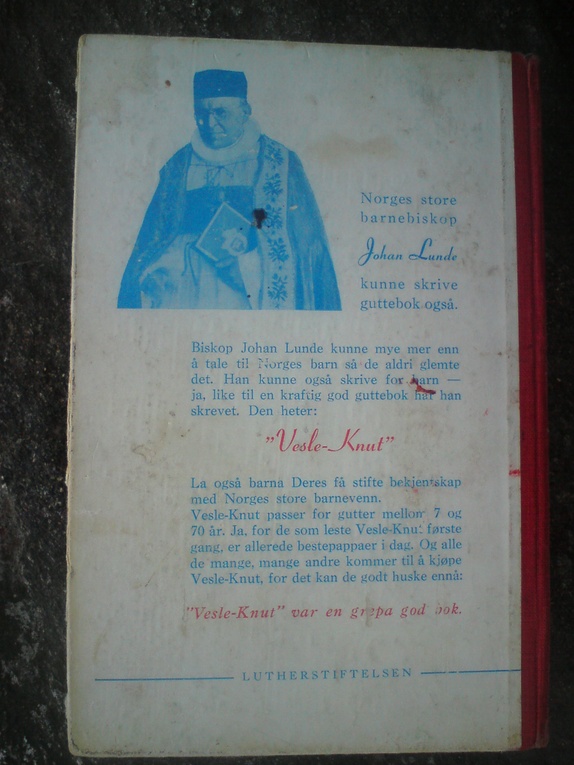 Norges store
barnebiskop
Johan Lunde
kunne skrive
guttebok også.
Biskop Johan Lunde kunne mye mer enn
å tale til Norges barn så de aldri glemte
det. Han kunne også skrive for barn —
ja, like til en kraftig god guttebok har han
skrevet. Den heter:
"Vesle-Knut"
La også barna Deres få stifte bekjentskap
med Norges store barnevenn.
Vesle-Knut passer for gutter mellom 7 og
70 år. Ja, for de som leste Vesle-Knut første
gang, er allerede bestepappaer i dag. Og alle
de mange, mange andre kommer til å kjøpe
Vesle-Knut, for det kan de godt huske ennå:
"Vesle-Knut" var en grepa god bok.
LUTHERSTIFTELSEN